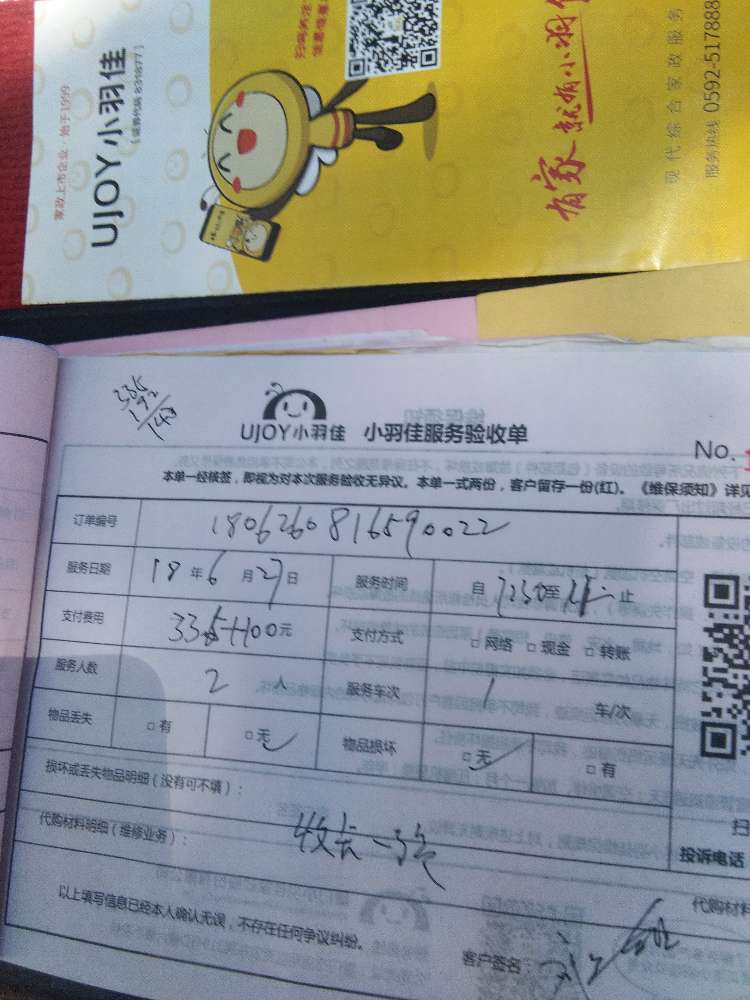 家政上市企业·始于1999
UJOY小羽佳
[证券代码 831877]
有家就有小羽佳
现代综合家政服务
服务热线 0592-517888
335
192
143
UJOY小羽佳 小羽佳服务验收单
No.
本单一经核签，即视为对本次服务验收无异议。本单一式两份，客户留存一份(红)。《维保须知》详见
订单编号 1806260816590022
服务日期 18 年 6 月 27 日 服务时间 自 至 止
支付费用 335+100元 支付方式 □网络 □现金 □转账
服务人数 2 人 服务车次 1 车/次
物品丢失 □有 □无 物品损坏 □无 □有
损坏或丢失物品明细（没有可不填）：
代购材料明细（维修业务）：
投诉电话
代购材料
以上填写信息已经本人确认无误，不存在任何争议纠纷。
客户签名